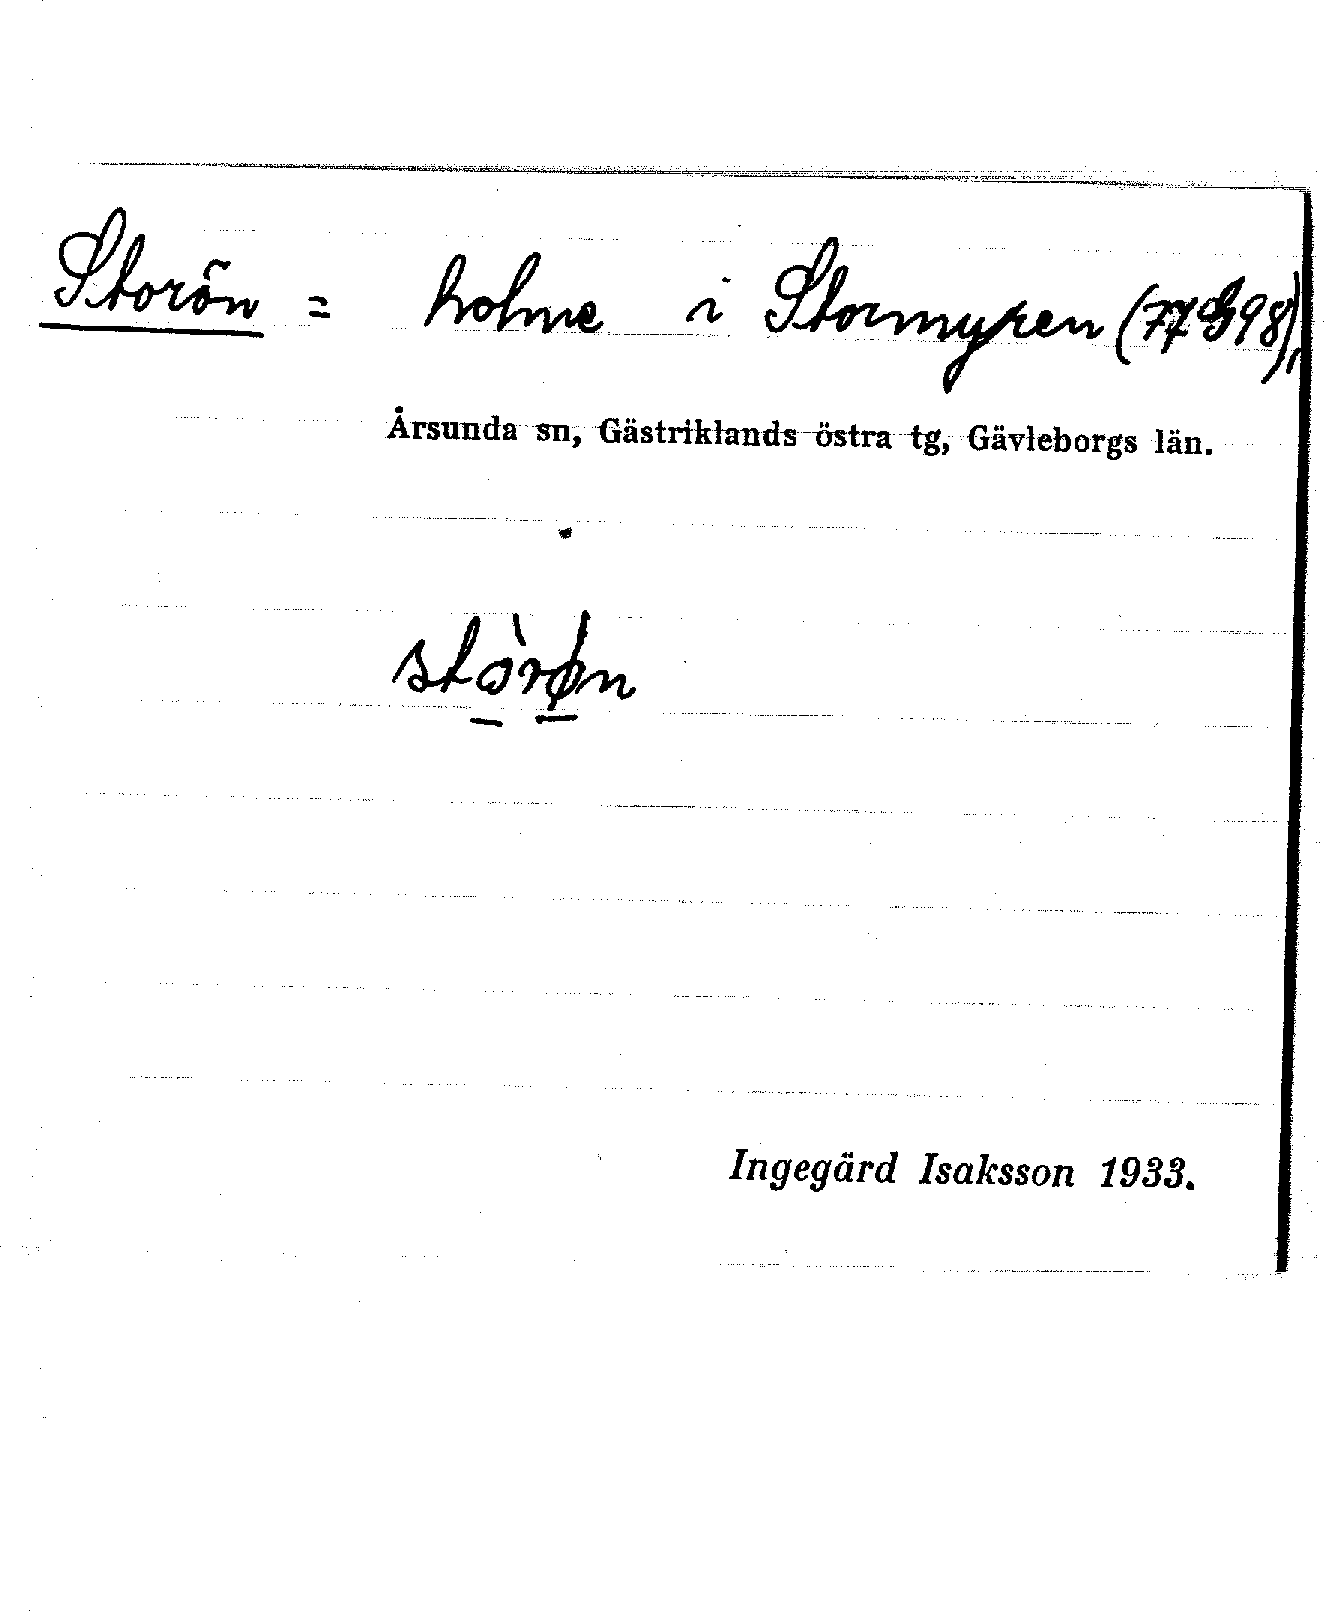 Storön = holme i Stormyren (77 G 98),
Årsunda sn, Gästriklands östra tg, Gävleborgs län.
stòrøn
Ingegärd Isaksson 1933.